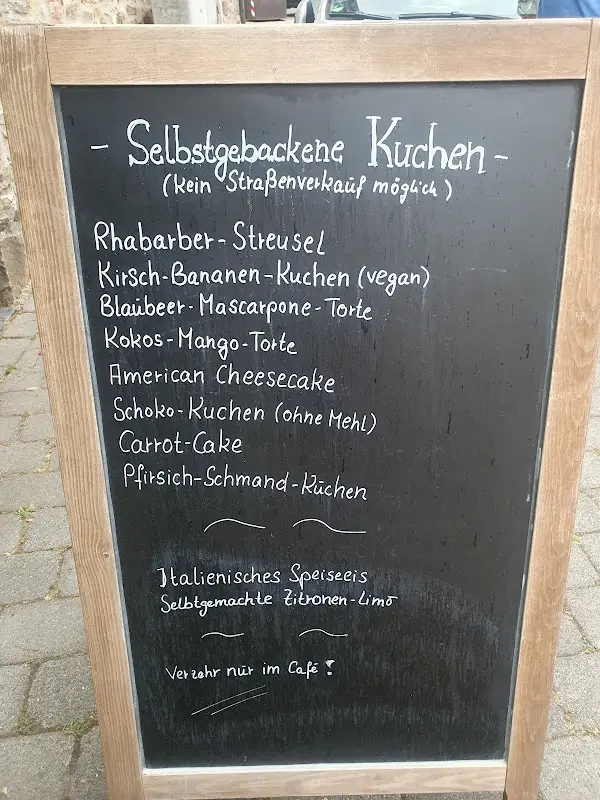 - Selbstgebackene Kuchen -
(kein Straßenverkauf möglich)
Rhabarber-Streusel
Kirsch-Bananen-Kuchen (vegan)
Blaubeer-Mascarpone-Torte
Kokos-Mango-Torte
American Cheesecake
Schoko-Kuchen (ohne Mehl)
Carrot-Cake
Pfirsich-Schmand-Kuchen
Italienisches Speiseeis
Selbtgemachte Zitronen-Limo
Verzehr nur im Café!